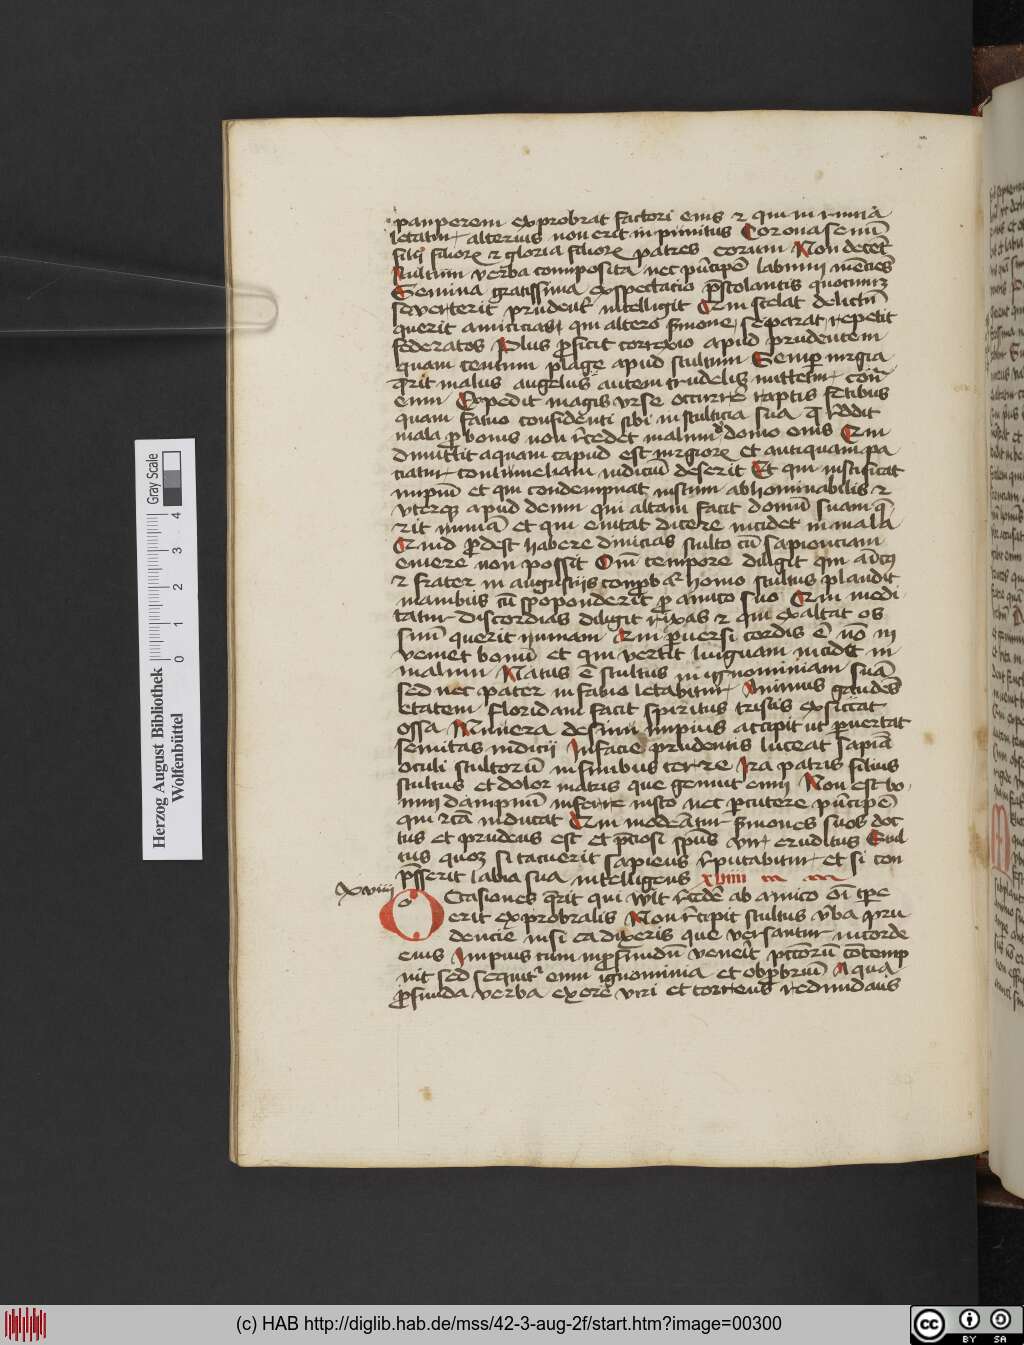 pauperem exprobrat factori eius ⁊ qui in ruina
letatur alterius non erit in punitus Corona senum̄
filij filiorꝝ ⁊ gloria filiorꝝ patres eorum Non decet
stultum verba composita nec pūcipē labium mēciēs
Gemma gratissima expectacio p̄stolantis quocumqꝫ
se verterit prudent͛ intelligit Qui celat delictū
querit amicicias qui altero s̄mone separat repetit
federatos Plus ꝓficit correxio apud prudentem
quam centum plage apud stultum Semper iurgia
q̄rit malus angelus autem crudelis mittetur con̄
eum Expedit magis vrse occurre͛ raptis fetibus
quam fatuo confidenti sibi in stulticia sua q̄ r̄ddit
mala ꝓ bonis non r̄cedet malum de domo eius Qui
dimittit aquam capud est iurgiorꝝ et antiquam pa
ciatur contumeliam iudiciū deserit Et qui iustificat
impiū et qui condempnat iustum abhominabilis ⁊
vterqꝫ apud deum qui altam facit domū suam q̄
rit ruinā et qui euitat dicere incidet in mala
Quid ꝓdest habere diuicias stulto cū sapienciam
emere non possit Om̄i tempore diligit qui amicꝰ ē
⁊ frater in angustijs comꝓbat͛ homo stultus plaudit
manibus cū spoponderit ꝓ amico suo Qui medi
tatur discordias diligit rixas ⁊ qui exaltat os
suū querit ruinam Qui ꝑuersi cordis ē nō in
veniet bonū et qui vertit linguam incidet in
malum Natus ē stultus in ignominiam suā
sed nec pater in fatuo letabitur Animus gaudēs
etatem floridam facit spiritus tristis exsiccat
ossa Munera de sinu impius accipit ut ꝑuertat
semitas iudicij In facie prudentis luceat sapiā
oculi stultorū in finibus terre Ira patris filius
stultus et dolor matris que genuit eum Non est bo
num dampnū inferre iusto nec ꝑcutere pūcipē
qui rc̄a iudicat Qui moderatur s̄mones suos doc
tus et prudens est et p̄ciosi sp̄us vir eruditus Stul
tus quoqꝫ si tacuerit sapiens r̄putabitur et si con
p̄sserit labia sua intelligens xviiii
xviiij
Occasiones q̄rit qui wlt r̄cedē ab amico om̄i tp̄e
erit exprobralis Non r̄cipit stultus v̄ba pru
dencie nisi ea dixeris que versantur in corde
eius Impius cum in ꝓfundū venerit pccōrū cōtemp
nit sed sequit͛ eum ignominia et obꝓbriū Aqua
ꝓfunda verba ex ore viri et torrens redundans
Herzog August Bibliothek
Wolfenbüttel
Gray Scale
0 1 2 3 4
(c) HAB http://diglib.hab.de/mss/42-3-aug-2f/start.htm?image=00300
cc BY SA